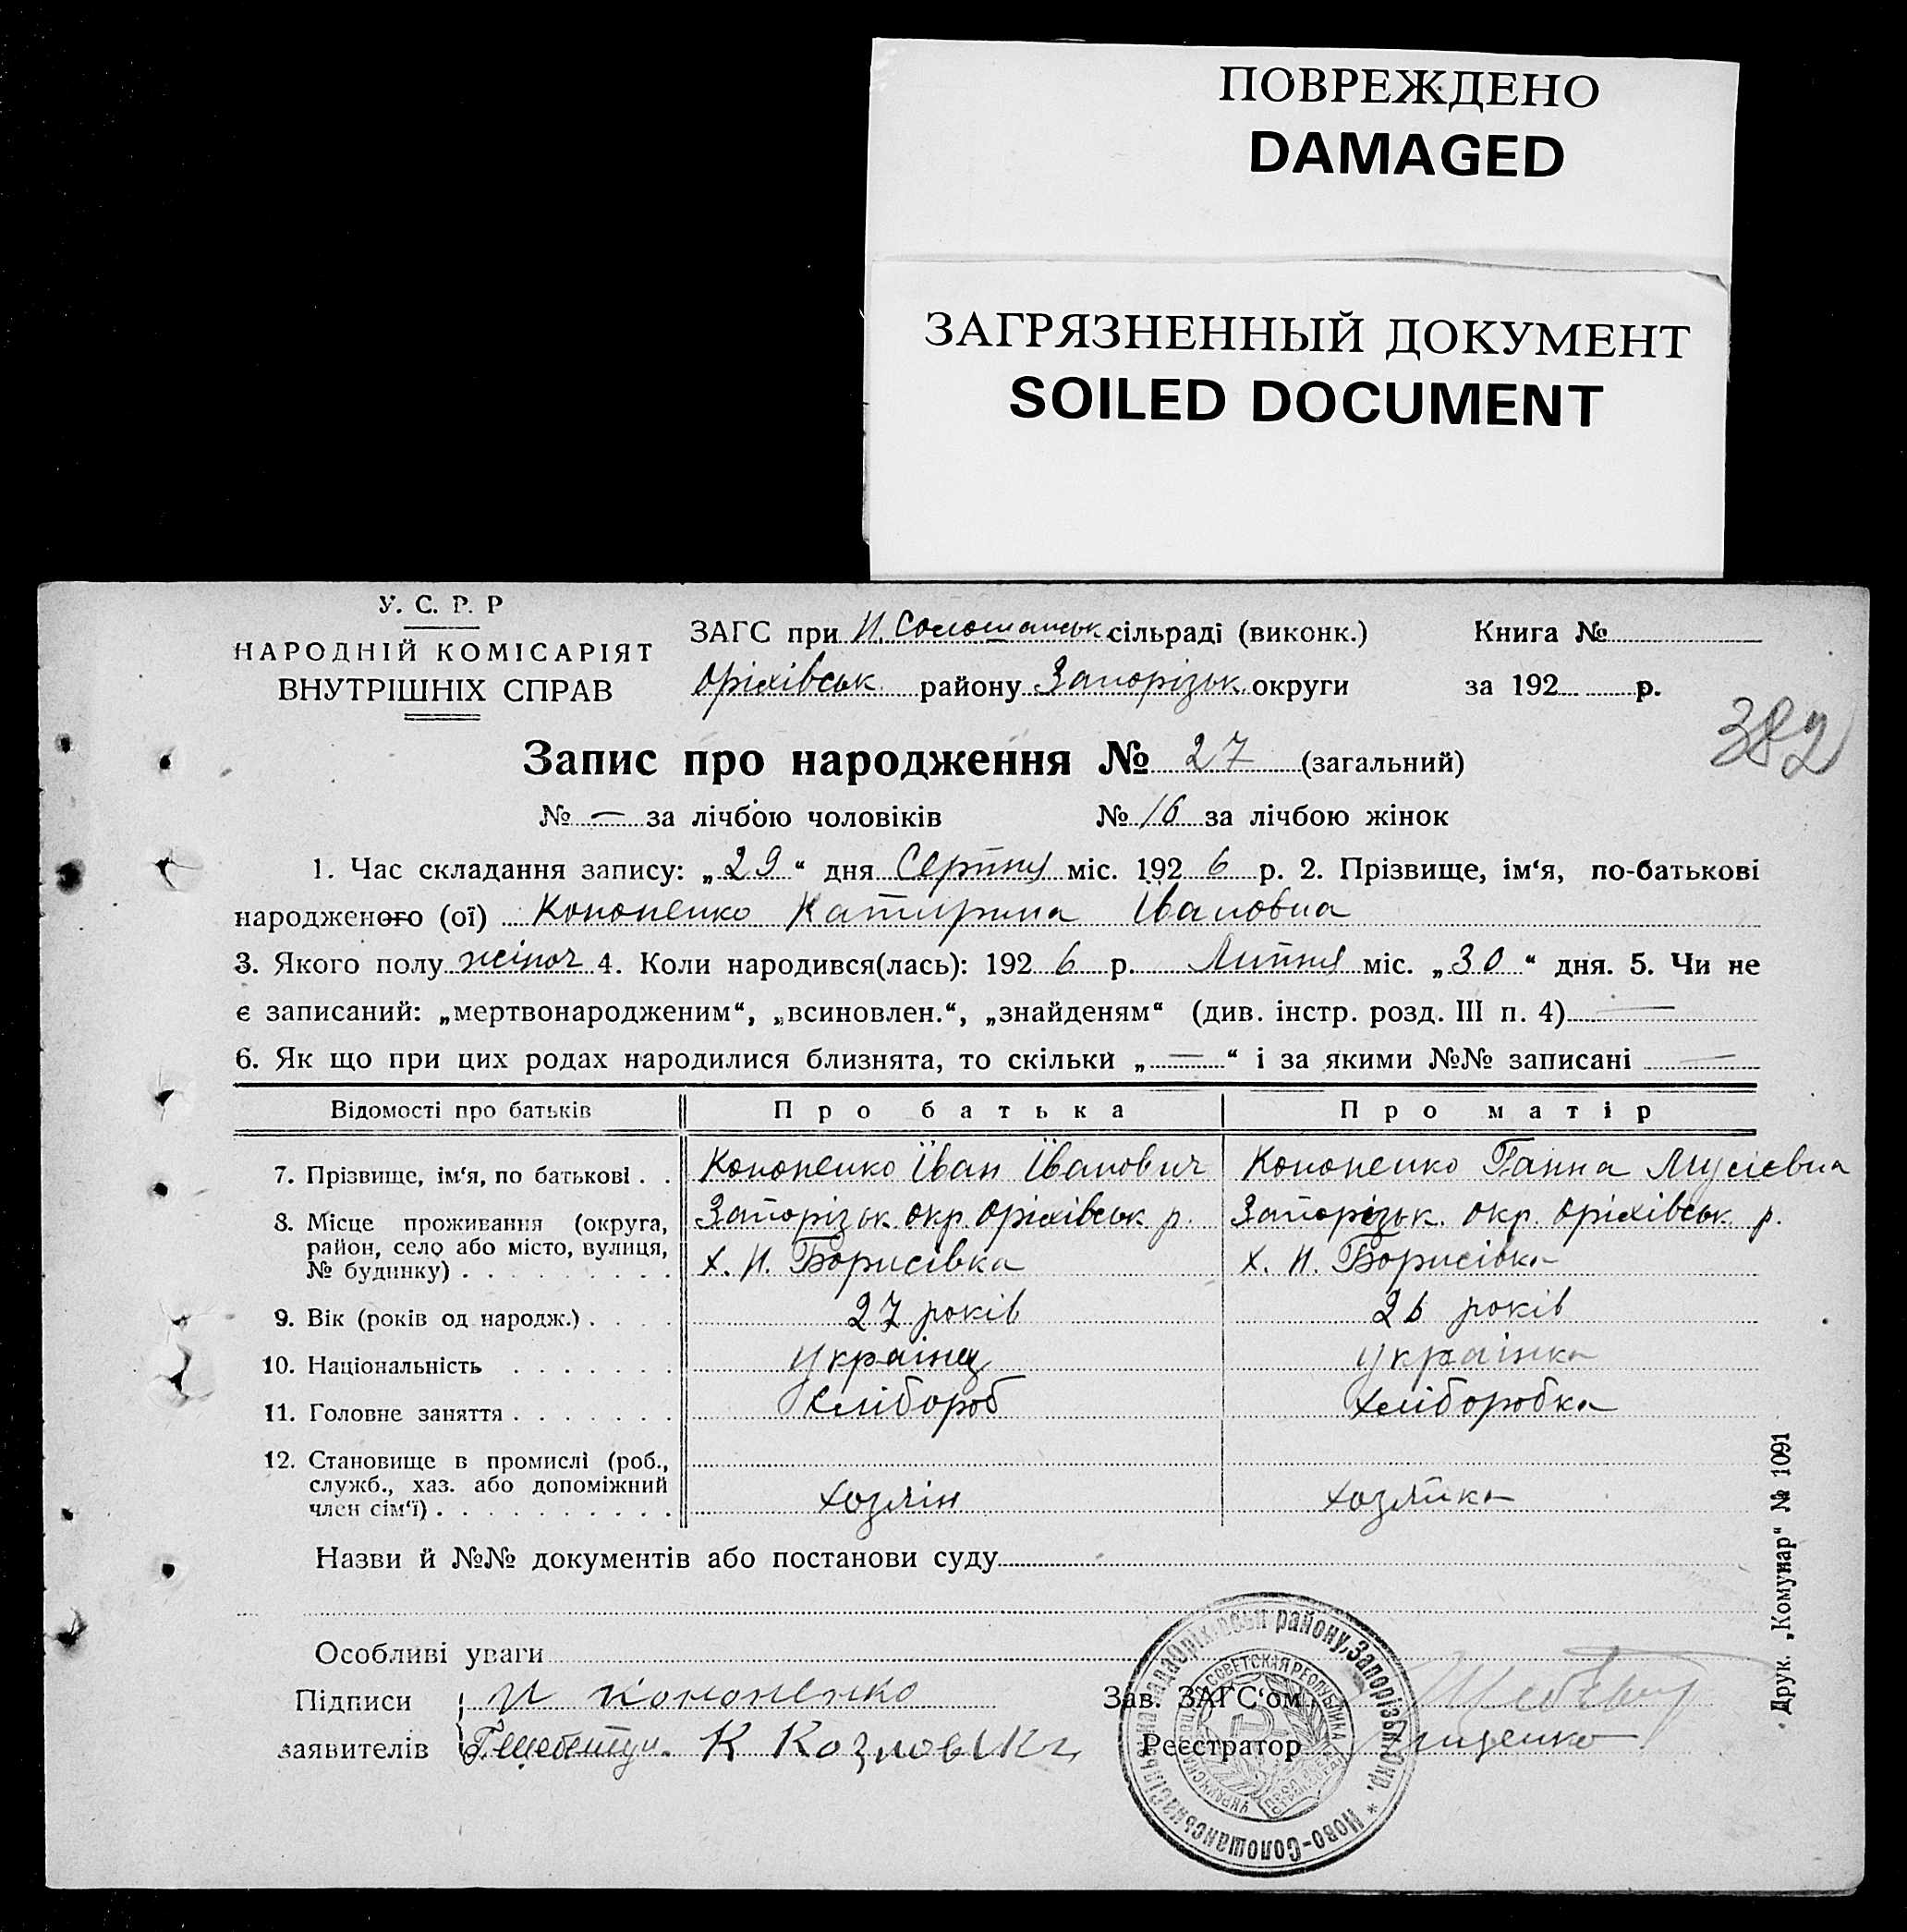 ПОВРЕЖДЕНО
DAMAGED
ЗАГРЯЗНЕННЫЙ ДОКУМЕНТ
SOILED DOCUMENT
У. С. Р. Р
НАРОДНІЙ КОМІСАРІЯТ
ВНУТРІШНІХ СПРАВ
ЗАГС при Н. Солошанськ сільраді (виконк.) Книга №
Оріхівськ району Запорізьк округи за 192 р.
382
Запис про народження № 27 (загальний)
№ — за лічбою чоловіків № 16 за лічбою жінок
1. Час складання запису: „29“ дня Серпня міс. 1926 р. 2. Прізвище, ім‘я, по-батькові
народженого (ої) Кононенко Катирина Івановна
3. Якого полу жіноч 4. Коли народився(лась): 1926 р. Липня міс. „30“ дня. 5. Чи не
є записаний: „мертвонародженим“, „всиновлен.“, „знайденям“ (див. інстр. розд. III п. 4) —
6. Як що при цих родах народилися близнята, то скільки „—“ і за якими №№ записані —
Відомості про батьків Про батька Про матір
7. Прізвище, ім‘я, по батькові . . Кононенко Іван Іванович Кононенко Ганна Мусієвна
8. Місце проживання (округа, Запорізьк окр. Оріхівськ р. Запорізьк. окр. Оріхівськ р.
район, село або місто, вулиця,
№ будинку) . . . . . . . . . х. Н. Борисівка х. Н. Борисівка
9. Вік (років од народж.) . . . . 27 років 26 років
10. Національність . . . . . . . українц українка
11. Головне заняття . . . . . . . Хлібороб хліборобка
12. Становище в промислі (роб.,
служб., хаз. або допоміжний хозяін хозяйка
член сім‘ї) . . . . . . . . . .
Назви й №№ документів або постанови суду
Особливі уваги
Підписи И Кононенко Зав. ЗАГС‘ом
заявителів К Козловska Реєстратор
Друк. „Комунар“ № 1091
Ново-Солошанська Сільська Рада Оріхівськ району, Запорізьк. Окр. *